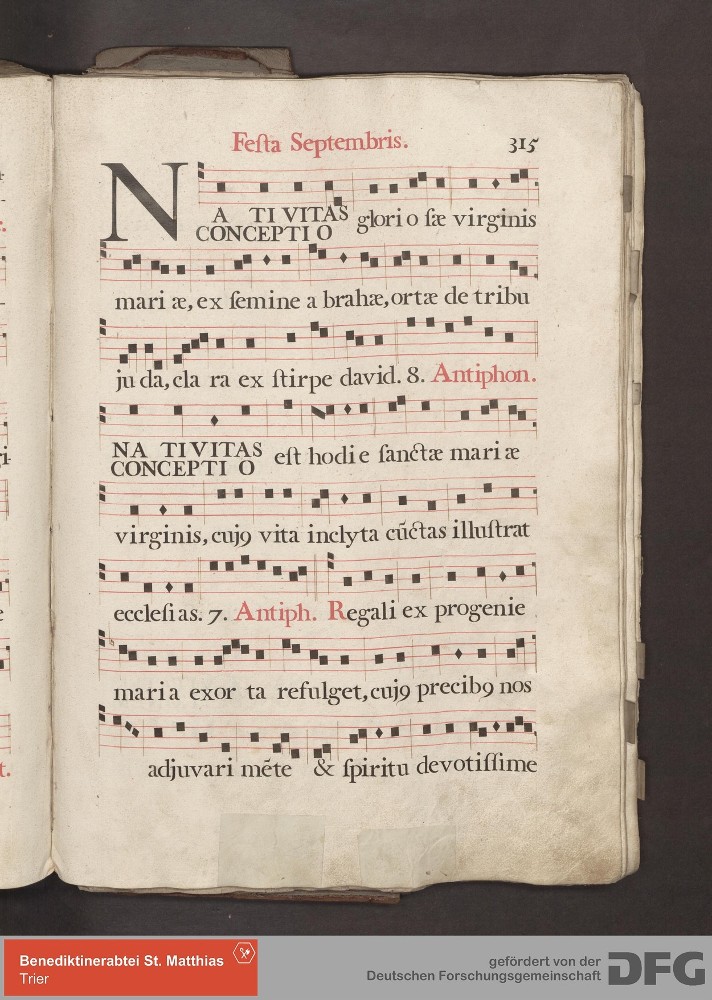 Feſta Septembris. 315
NA TIVITAS glori o ſæ virginis
CONCEPTI O
mari æ, ex ſemine a brahæ, ortæ de tribu
ju da, cla ra ex ſtirpe david. 8. Antiphon.
NA TIVITAS eſt hodi e ſanctæ mari æ
CONCEPTI O
virginis, cujꝯ vita inclyta cūctas illuſtrat
eccleſi as. 7. Antiph. Regali ex progenie
mari a exor ta refulget, cujꝯ precibꝯ nos
adjuvari mēte & ſpiritu devotiſſime
Benediktinerabtei St. Matthias
Trier
gefördert von der
Deutschen Forschungsgemeinschaft DFG